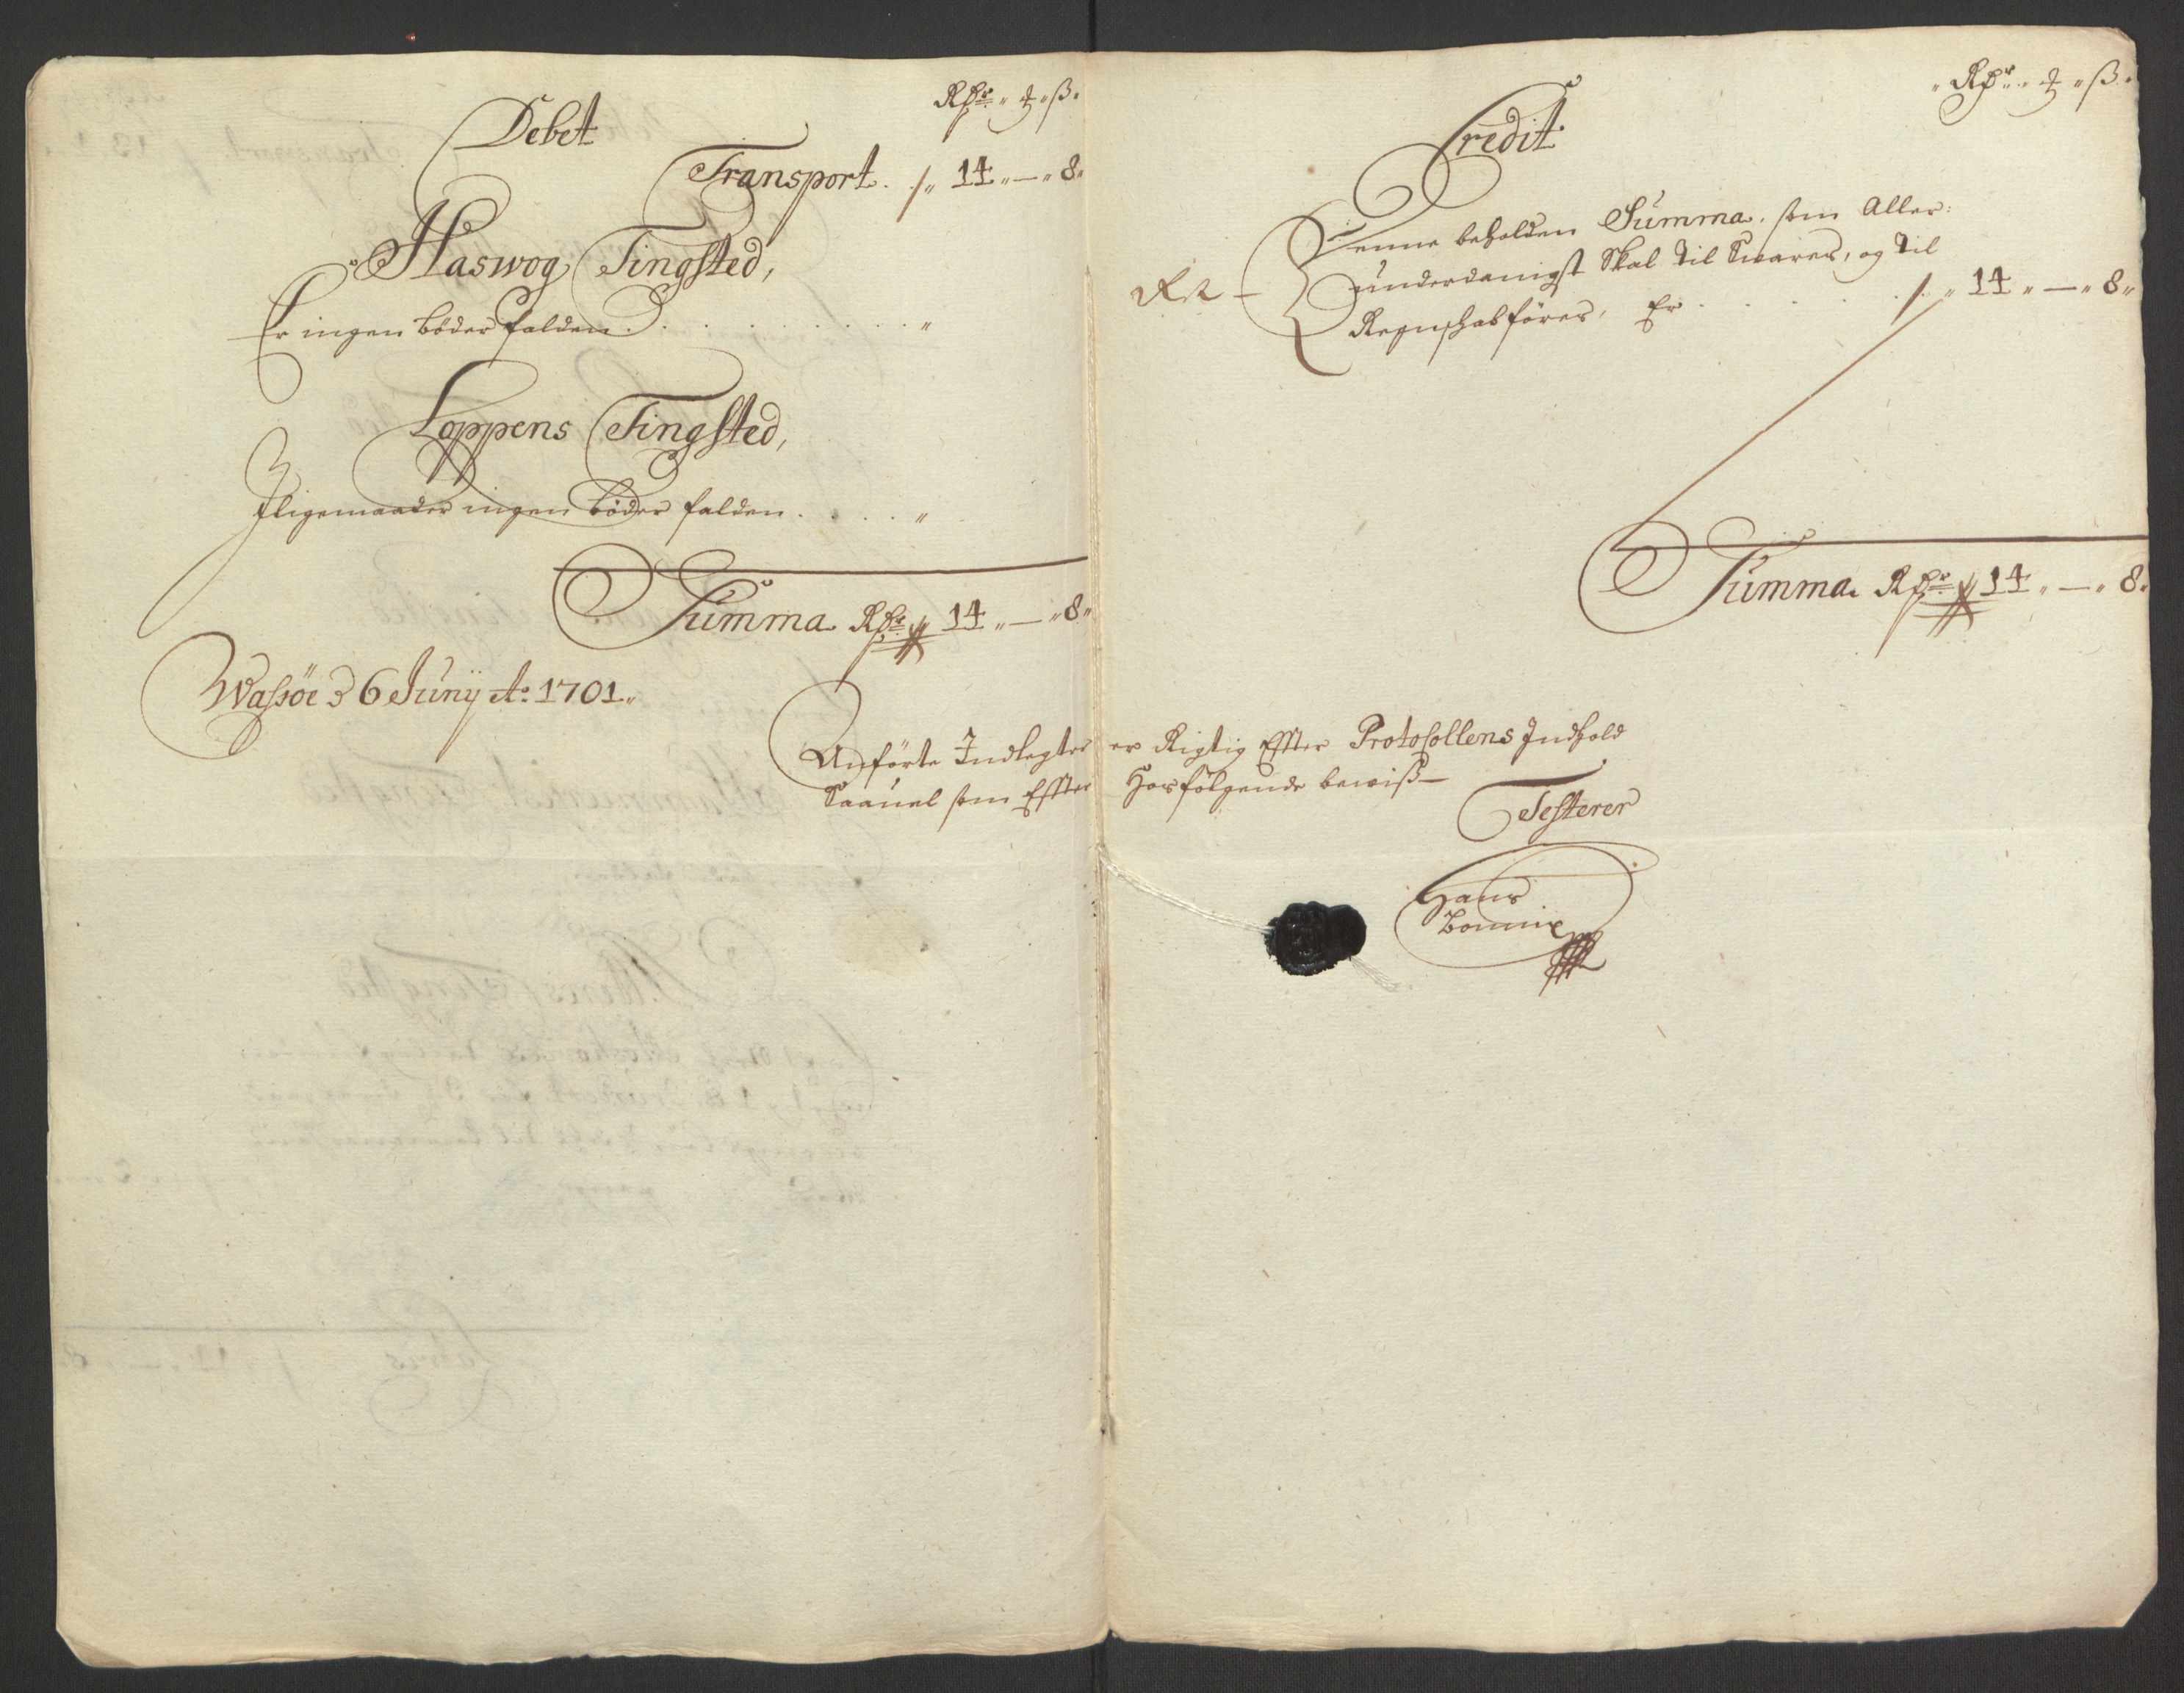 Debet
Rdr " ₰ " ß "
Transport . /" 14 " — " 8 "
Haswog Tingsted,
Er ingen bøder falden . . . . . . . . . "
Loppens Tingsted,
Jligemaader ingen bøder falden . . . . "
Summa Rdr 14 " — " 8 "
Wassöe d 6 Junij Ao 1701 "
Credit
" Rdr " ₰ " ß "
Denne beholden Summa, som Aller:
underdanigst Skal Til Swares, og Til
Regnskabføres, Er . . . . . . /" 14 " — " 8 "
Summa Rdr 14 " — " 8 "
Anførte Indtegter er Rigtig Efter Protocollens Indhold
Saauel som Efter Hosfølgende bewiß —
Testerer
Hans